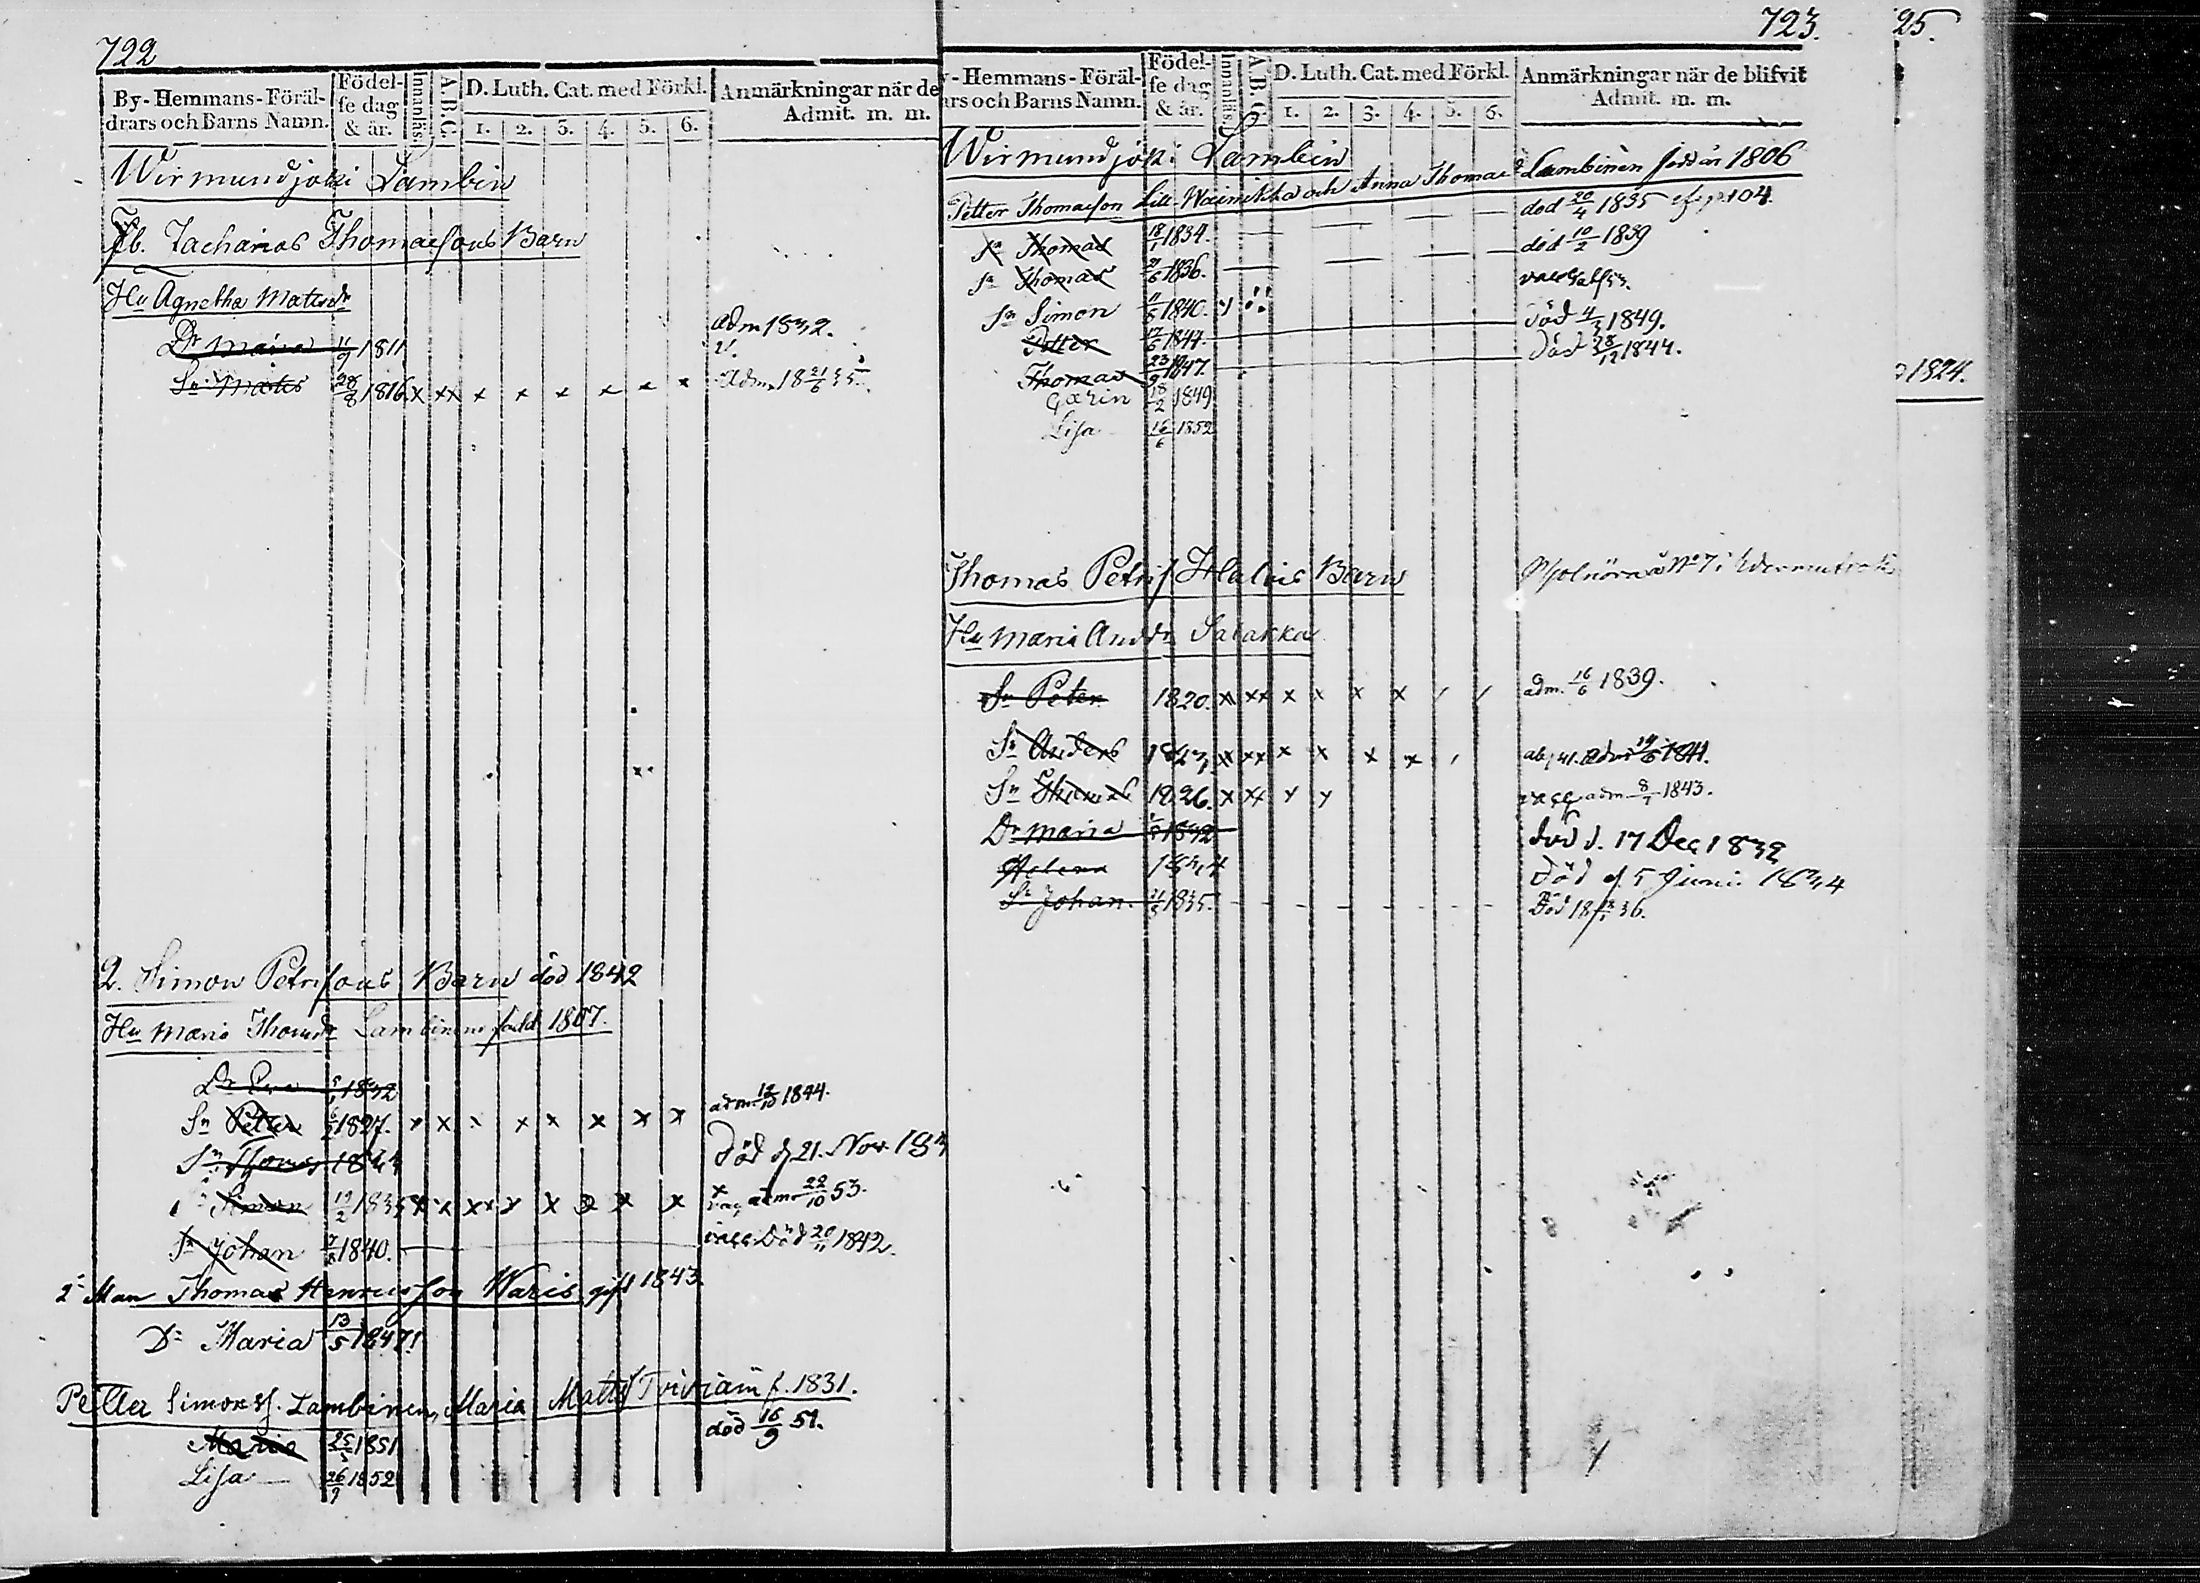 722
By-Hemmans-Föräl-
drars och Barns Namn.
Födel-
se dag
& år.
Innanläs.
A. B. C.
D. Luth. Cat. med Förkl.
1. 2. 3. 4. 5. 6.
Anmärkningar när de
Admit. m. m.
Wirmundjoki Lambin
Zacharias Thomaesons Barn
Hu Agnetha Matsdr
Dr Maria 11/9 1811 adm 1832.
Sn Mats 28/8 1816. x xx x x x x x x Adm. 18 21/6 35
2. Simon Petrisons Barn död 1842
Hu Maria Thomdr Lambinen född 1807.
Dr Eva 1832
Sn Petter 1827. x x x x x x x x adm 12/10 1844.
Sn Thomas Död d 21. Nov.
Simon 19/2 1835 x x xx x x x x x vac adm 22/10 53.
Sn Johan 1840. vacc Död 20/11 1842.
2 Man Thomas Henricsson Waris gift 1843.
Dr Maria 13/5 1847
Petter Simons. Lambinen, Maria Matts f. 1831.
Maria 25 1851 död 16/9 51.
Lisa 26/9 1852
723.
-Hemmans-Föräl-
ars och Barns Namn.
Födel-
se dag
& år.
Innanläs.
A. B. C.
D. Luth. Cat. med Förkl.
1. 2. 3. 4. 5. 6.
Anmärkningar när de blifvit
Admit. m. m.
Wirmundjoki Lambin
Petter Thomasson Lill-Wainikka och Anna Thomasd Lambinen född år 1806
Sn Thomas 18/1 1834. död 20/4 1835 104.
Sn Thomas 21/6 1836. död 10/2 1839
Sn Simon 11/5 1840.
Petter 17/6 1844. död 4/3 1849.
Thomas 23/9 1847 Död 28/12 1844.
Carin 18/2 1849
Lisa 16/6 1852
Thomas Petris Halvis Barn
Hu Maria Andr Salakka
Sn Peter 1820. x xx x x x x / / adm. 16/6 1839.
Sn Anders 1823 x xx x x x x
Sn Thomas 1826. x xx x x vacc adm 8/7 1843.
Dr Maria 1832 död d. 17 Dec 1832
Helena 1834 Död d. 5 Juni 1834
Sn Johan. 1835. Död 18 36.
25.
1824.